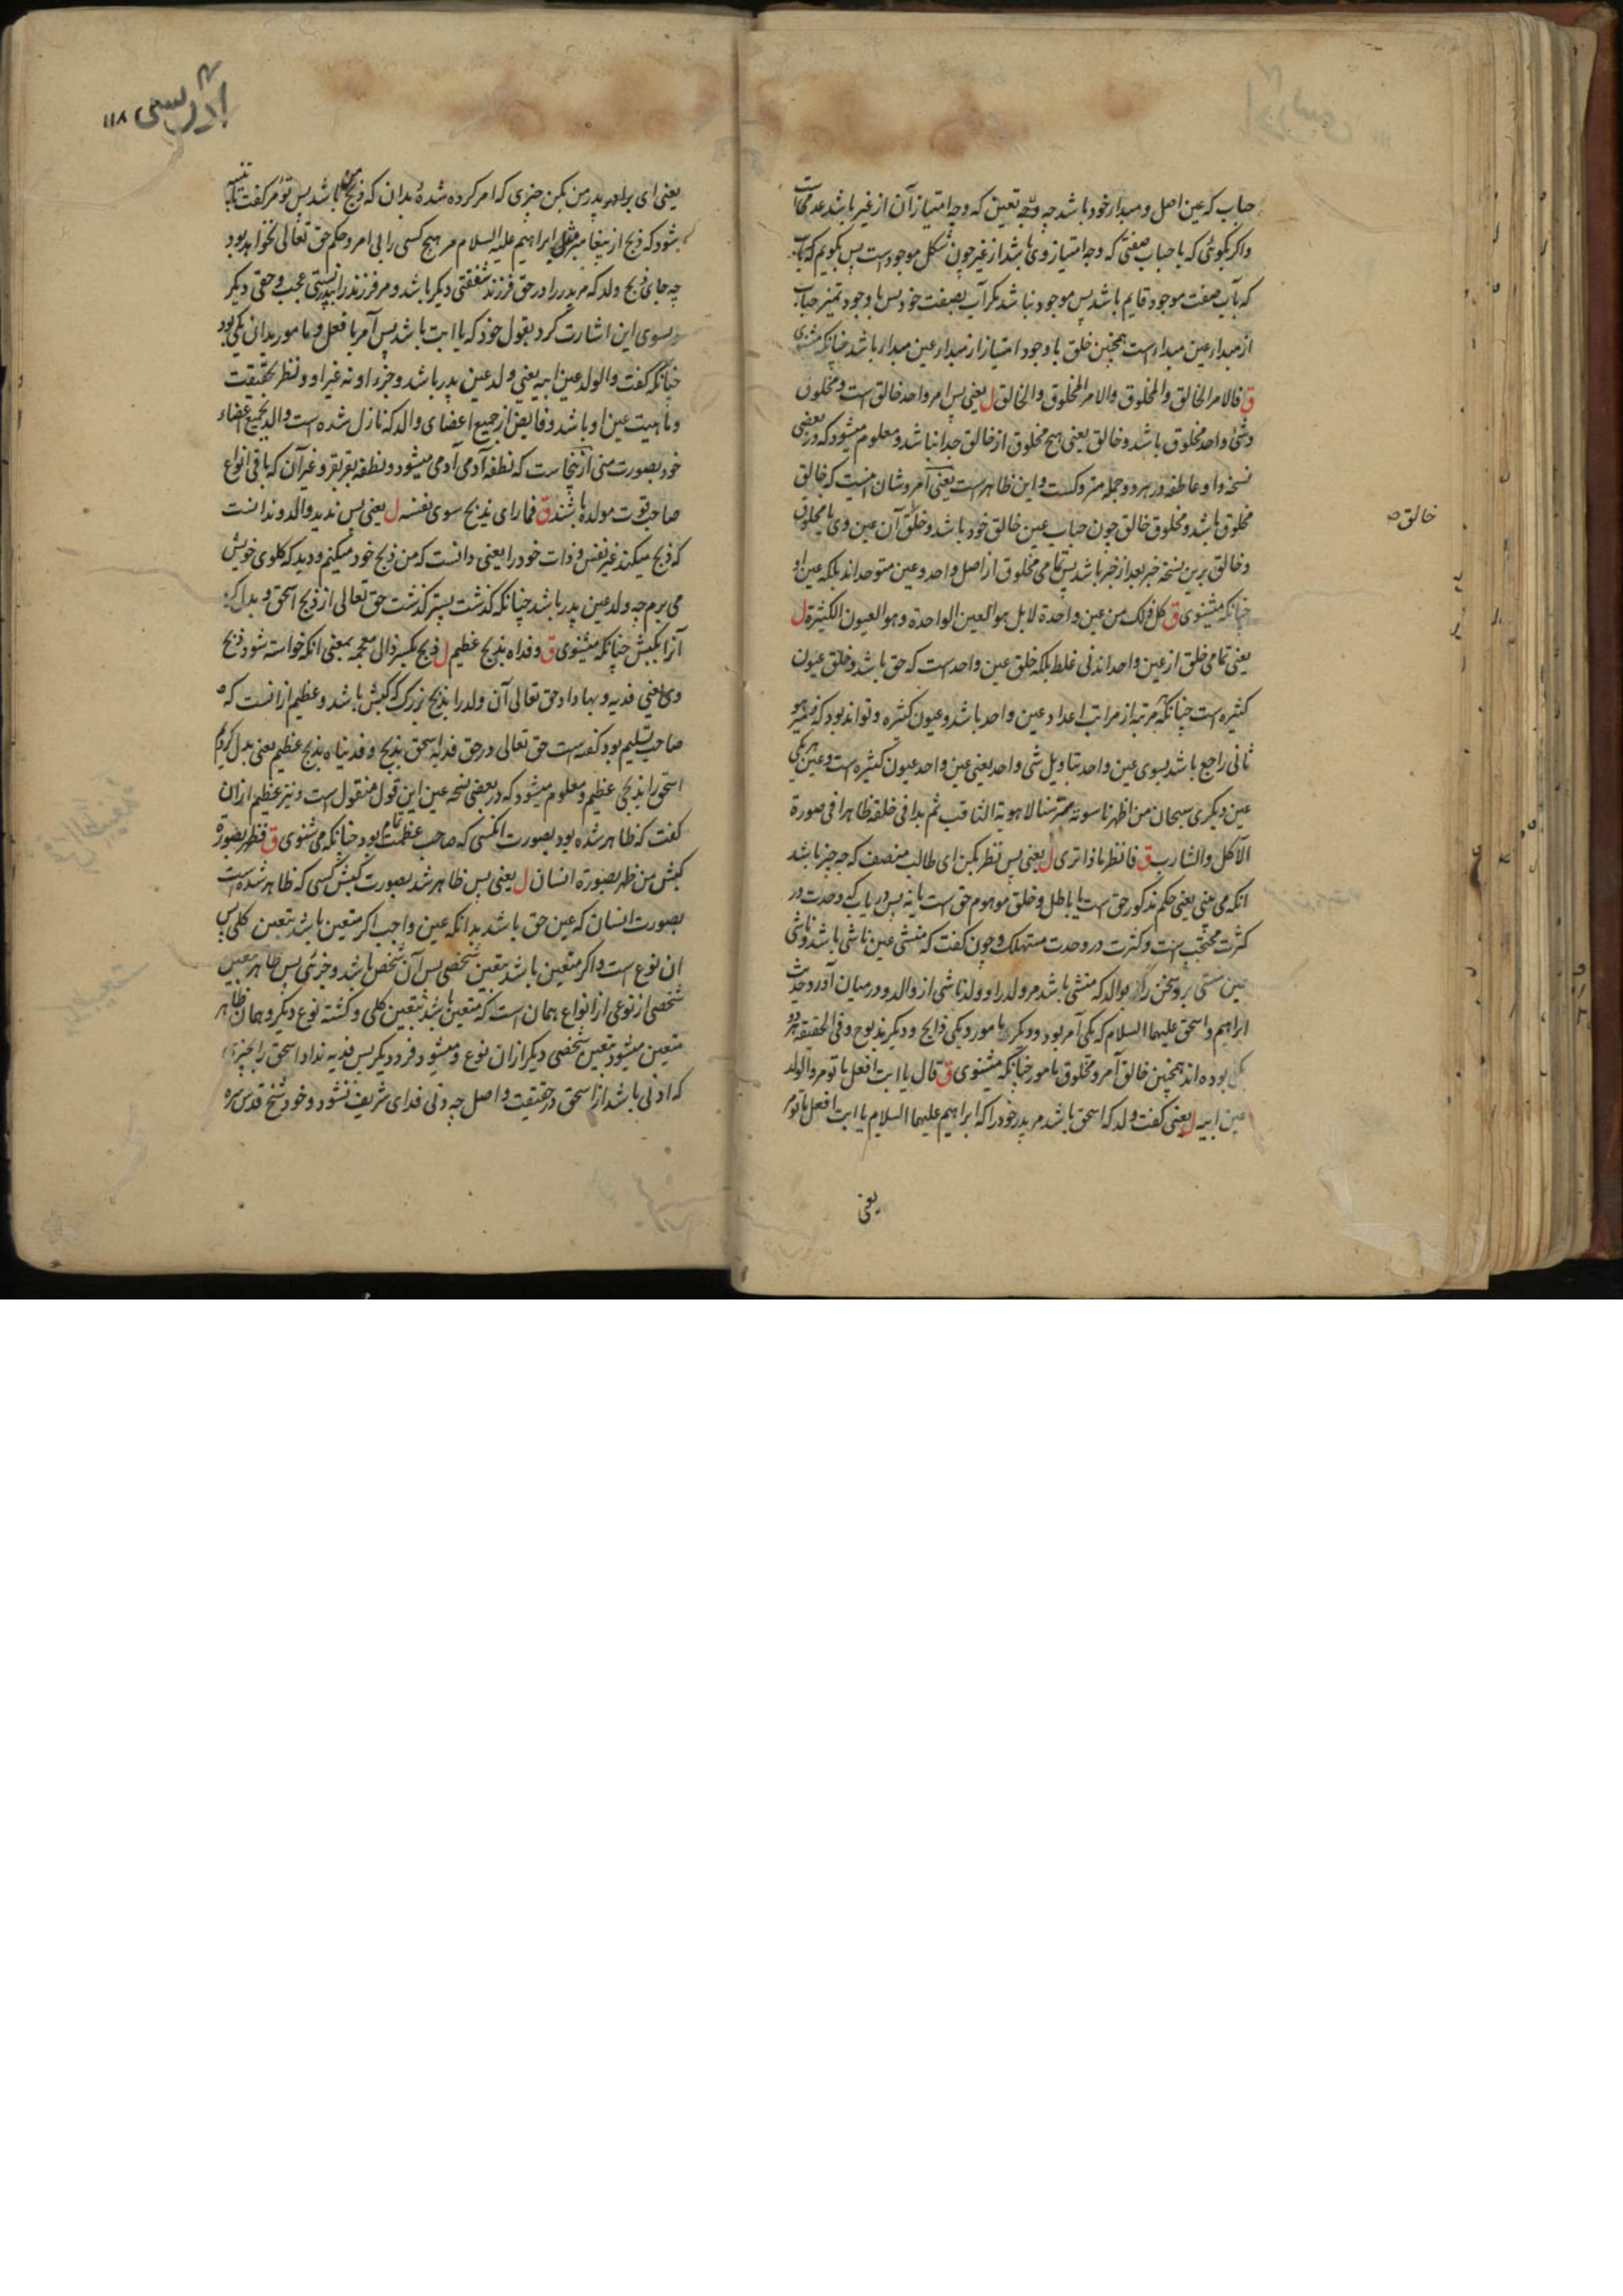 حباب که عین اصل و مبدار خود باشد چه وجه تعین که وجه امتیاز آن از غیر باشد عدمی است
واکر بکوئی که با حباب صفتی که وجه امتیاز وی باشد از غیر چون شکل موجودست پس بکویم که
که بآب صفت موجود قایم باشد پس موجود نباشد مکر آب بصفت خود پس با وجود تمیز حباب
از مبدار عین مبداءست همچنین خلق با وجود امتیاز از مبدار عین مبداء باشد چنانکه مشنوی
ق فالامر الخالق والمخلوق والامر المخلوق والخالق ل یعنی پس امر واحد خالق است و مخلوق
وشئ واحد مخلوق باشد و خالق یعنی هیچ مخلوق از خالق جدا نباشد و معلوم میشود که در بعضی
نسخه واو عاطفه در هر دو جمله متروکست و این ظاهرست یعنی امر و شان اینست که خالق
مخلوق باشد و مخلوق خالق چون حباب عین خالق خود باشد و خلق آن عین وی یا مخلوق
خالق صح
وخالق برین نسخه خبر بعد از خبر باشد پس تمامی مخلوق از اصل واحد و عین متوحد اند بلکه عین او
چنانکه میشنوی ق کل ذلک من عین واحدة لا بل هو العین الواحدة وهو العیون الکثیرة ل
یعنی تمامی خلق از عین واحد اند نی غلط بلکه خلق عین واحدست که حق باشد و خلق عیون
کثیره است چنانکه هر مرتبه از مراتب اعداد عین واحد باشد و عیون کثیره و تواند بود که ضمیر هو
ثانی راجع باشد بسوی عین واحد بتاویل شئ واحد یعنی عین واحد عیون کثیره است و عین هر یکی
عین دیکری سبحان من اظهر ناسوته سر سنا لاهوته الثاقب ثم بدا فی خلقه ظاهرا فی صورة
الآکل والشارب ق فانظر ماذا تری ل یعنی پس نظر بکن ای طالب منصف که چه چیز باشد
انکه می بینی یعنی حکم مذکور حق است یا باطل و خلق موهوم حق است یا نه پس دریاب که وحدت در
کثرت محتجب است و کثرت در وحدت مستهلک و چون کفت که منشی عین ناشی باشد و ناشی
عین منشی برو سخن راند بوالد که منشی باشد مر ولد را و ولد ناشی از والد و در میان آورد حدیث
ابراهیم و اسحق علیهما السلام که یکی آمر بود و دیکری مامور و یکی ذابح و دیکر مذبوح و فی الحقیقة هر دو
یکی بوده اند همچنین خالق آمر و مخلوق مامور چنانکه میشنوی ق قال یا ابت افعل ما تومر والولد
عین ابیه ل یعنی کفت ولد که اسحق باشد مر پدر خود را که ابراهیم علیهما السلام یا ابت افعل ما تومر
یعنی
ادریسی ۱۱۸
یعنی ای پدر من بکن چیزی که امر کرده شده بدان که ذبح من باشد پس تومر کفت تا تنبیه
بشود که ذبح از پیغامبر مثل ابراهیم علیه السلام مر هیچ کسی را بی امر و حکم حق تعالی نخواهد بود
چه جای ذبح ولد که مر پدر را در حق فرزند شفقتی دیکر باشد و مر فرزند را بپدر نسبتی عجب و حقی دیکر
و بسوی این اشارت کرد بقول خود که یا ابت باشد پس آمر با فعل و مامور بدانی یکی بود
چنانکه کفت والولد عین ابیه یعنی ولد عین پدر باشد و جزء او نه غیر او و نظر بحقیقت
و ماهیت عین او باشد و فایض از جمیع اعضای والد که نازل شده است والد بجمیع اعضاء
خود بصورت منی ازینجاست که نطفه آدمی آدمی میشود و نطفه بقر بقر و غیر آن که باقی انواع
صاحب قوت مولده باشند ق فما رای یذبح سوی نفسه ل یعنی پس ندید والد و ندانست
که ذبح میکند غیر نفس و ذات خود را یعنی دانست که من ذبح خود میکنم و دید که کلوی خویش
می برم چه ولد عین پدر باشد چنانکه کذشت پستر کذشت حق تعالی از ذبح اسحق و بدل کرد
آنرا بکبش چنانکه میشنوی ق وفداه بذبح عظیم ل ذبح بکسر ذال معجمه بمعنی انکه خواسته شود ذبح
وی یعنی فدیه و بها داد حق تعالی آن ولد را بذبح بزرک که کبش باشد و عظیم از انست که
صاحب تسلیم بود کفته است حق تعالی در حق فدیه اسحق بذبح وفدیناه بذبح عظیم یعنی بدل کردیم
اسحق را بذبحی عظیم و معلوم میشود که در بعضی نسخه عین این قول منقول است و نیز عظیم ازان
کفت که ظاهر شده بود بصورت انکسی که صاحب عظمت تامه بود چنانکه می شنوی ق فظهر بصورة
کبش من ظهر بصورة انسان ل یعنی پس ظاهر شد بصورت کبش کسی که ظاهر شده است
بصورت انسان که عین حق باشد بدانکه عین واجب اکر متعین باشد بتعین کلی پس
ان نوع است و اکر متعین باشد بتعین شخصی پس آن شخص باشد و جزئی پس ظاهر بتعین
شخصی از نوعی از انواع همان است که متعین باشد بتعین کلی و کشته نوع دیکر و همان ظاهر
متعین میشود بتعین شخصی دیکر ازان نوع و میشود فرد دیکر پس فدیه نداد اسحق را بچیزی
که ادنی باشد از اسحق در حقیقت و اصل چه دنی فدای شریف نشود و خود شیخ قدس سره